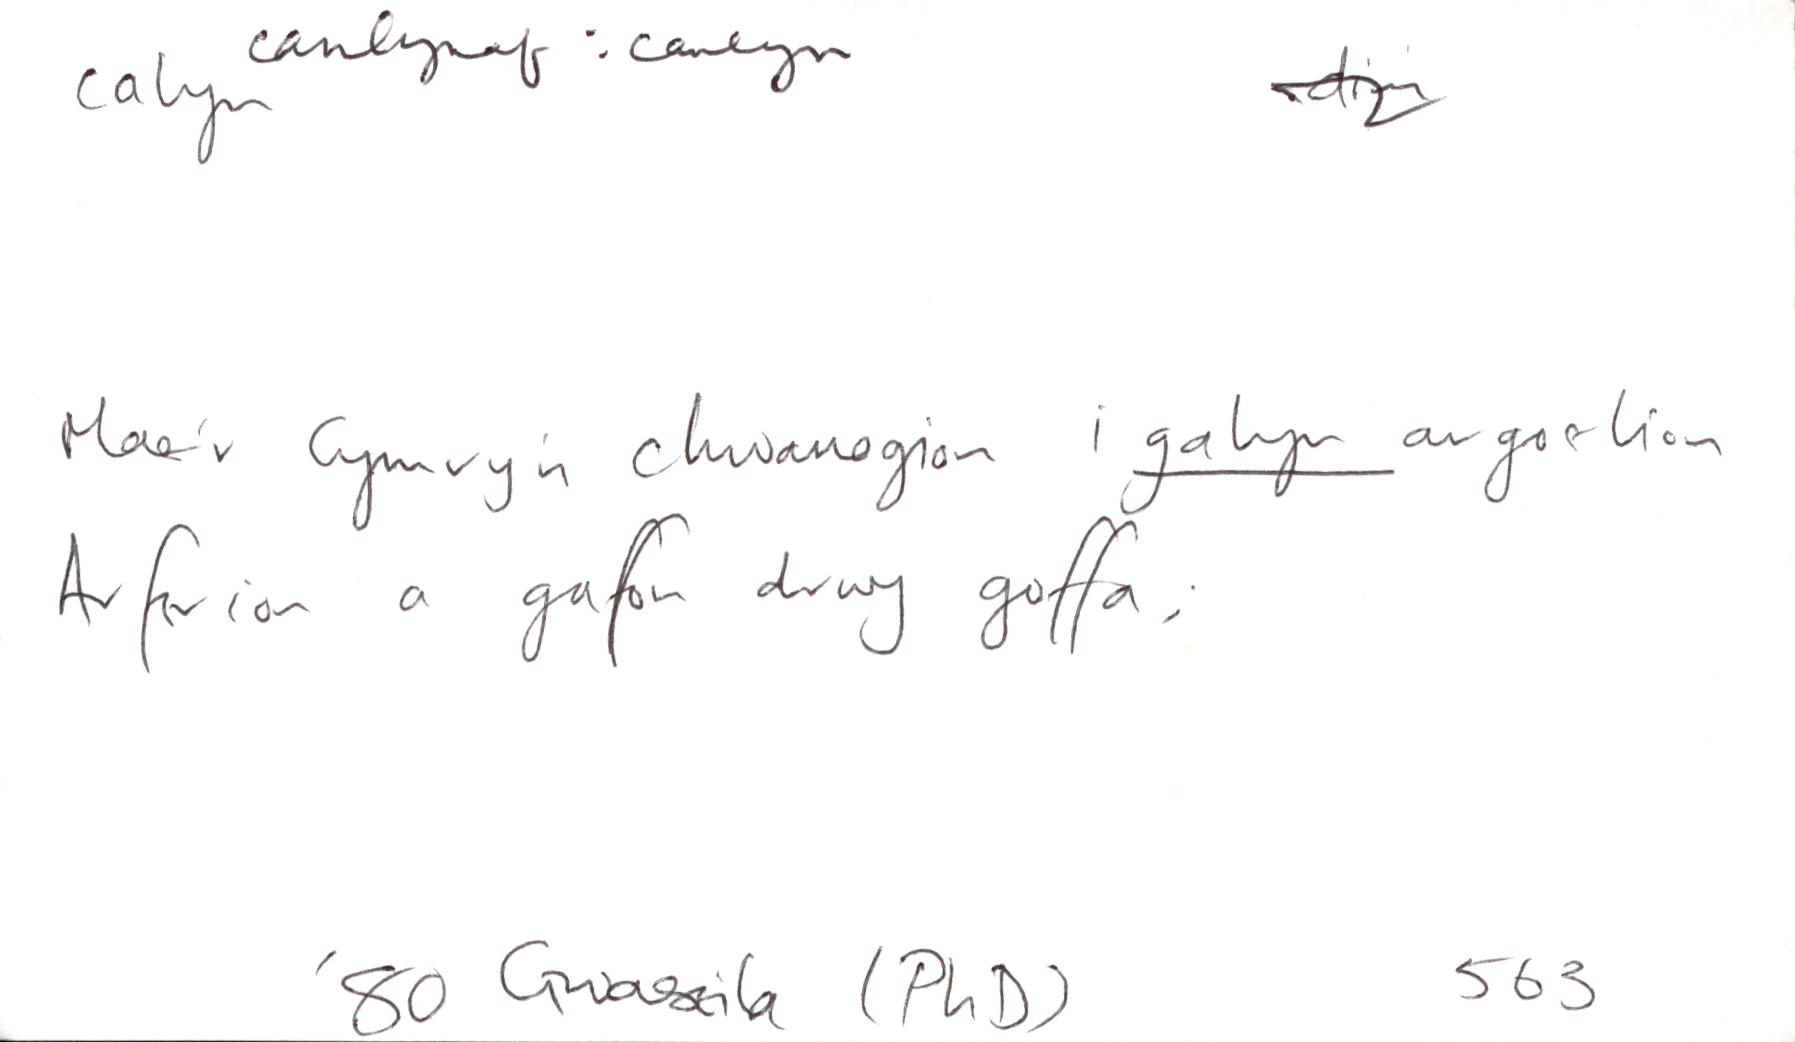 calyn canlynaf : canlyn
Mae'r Cymry'n chwanogion i galyn argoelion
Arferion a gafon drwy goffa;
'80 (PhD) 563